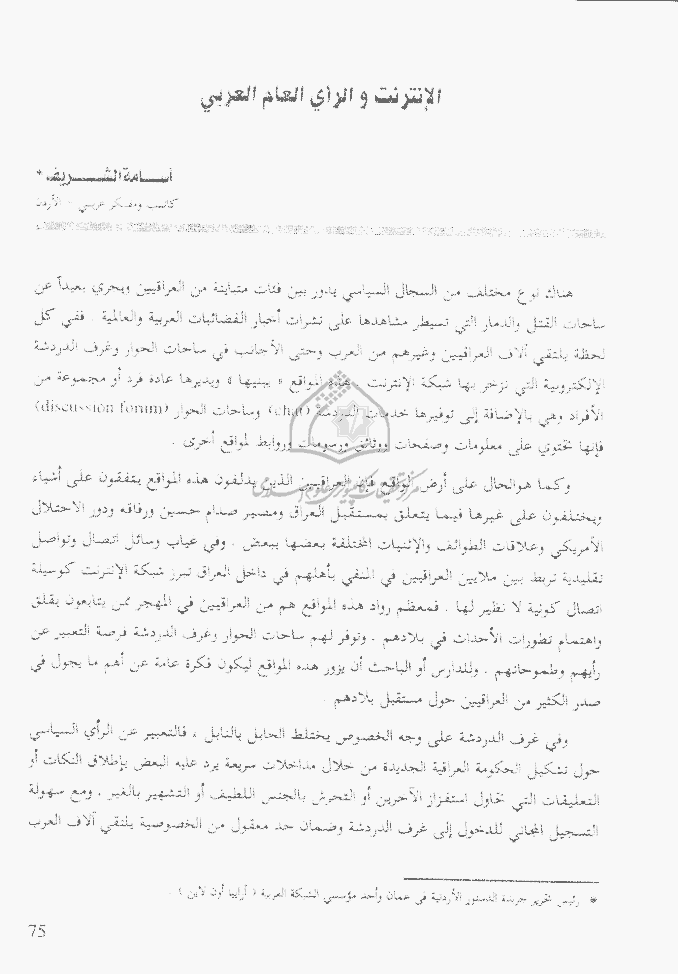 الإنترنت و الرأي العام العربي
أسـامة الشـريف *
كاتب ومفكر عربي - الأردن
هناك نوع مختلف من السجال السياسي يدور بين فئات متباينة من العراقيين ويجري بعيداً عن
ساحات القتل والدمار التي تسيطر مشاهدها على نشرات أخبار الفضائيات العربية والعالمية . ففي كل
لحظة يلتقي آلاف العراقيين وغيرهم من العرب وحتى الأجانب في ساحات الحوار وغرف الدردشة
الإلكترونية التي تزخر بها شبكة الإنترنت . هذه المواقع « يبنيها » ويديرها عادة فرد أو مجموعة من
الأفراد وهي بالإضافة إلى توفيرها خدمات الدردشة (chat) وساحات الحوار (discussion forum)
فإنها تحتوي على معلومات وصفحات ووثائق ورسومات وروابط لمواقع أخرى .
وكما هوالحال على أرض الواقع فإن العراقيين الذين يدلفون هذه المواقع يتفقون على أشياء
ويختلفون على غيرها فيما يتعلق بمستقبل العراق ومصير صدام حسين ورفاقه ودور الاحتلال
الأمريكي وعلاقات الطوائف والإثنيات المختلفة بعضها ببعض . وفي غياب وسائل اتصال وتواصل
تقليدية تربط بين ملايين العراقيين في المنفي بأهلهم في داخل العراق تبرز شبكة الإنترنت كوسيلة
اتصال كونية لا نظير لها . فمعظم رواد هذه المواقع هم من العراقيين في المهجر ممن يتابعون بقلق
واهتمام تطورات الأحداث في بلادهم . وتوفر لهم ساحات الحوار وغرف الدردشة فرصة التعبير عن
رأيهم وطموحاتهم . وللدارس أو الباحث أن يزور هذه المواقع ليكون فكرة عامة عن أهم ما يجول في
صدر الكثير من العراقيين حول مستقبل بلادهم .
وفي غرف الدردشة على وجه الخصوص يختلط الحابل بالنابل ، فالتعبير عن الرأي السياسي
حول تشكيل الحكومة العراقية الجديدة من خلال مداخلات سريعة يرد عليه البعض بإطلاق النكات أو
التعليقات التي تحاول استفزاز الآخرين أو التحرش بالجنس اللطيف أو التشهير بالغير . ومع سهولة
التسجيل المجاني للدخول إلى غرف الدردشة وضمان حد معقول من الخصوصية يلتقي آلاف العرب
* رئيس تحرير جريدة الدستور الأردنية في عمان وأحد مؤسسي الشبكة العربية « أرابيا أون لاين » .
75